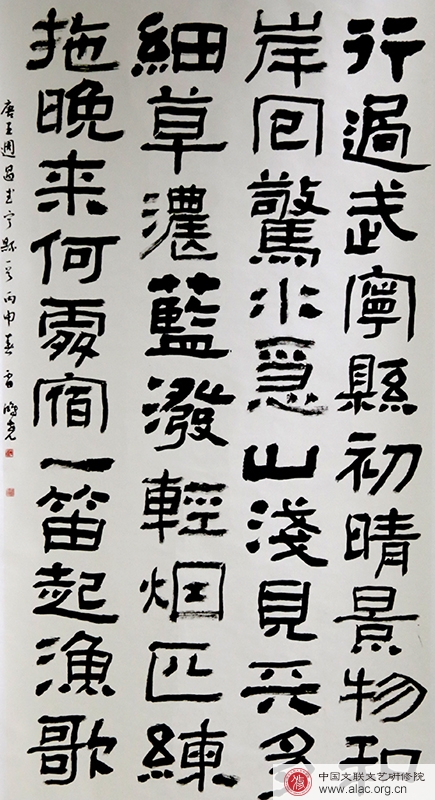 行過武寧縣初晴景物和
岸回驚水急山淺見天多
細草濃藍潑輕烟匹練
拖晚来何處宿一笛起漁歌
唐王週過武宁縣一首丙申春
中国文联文艺研修院
www.alac.org.cn